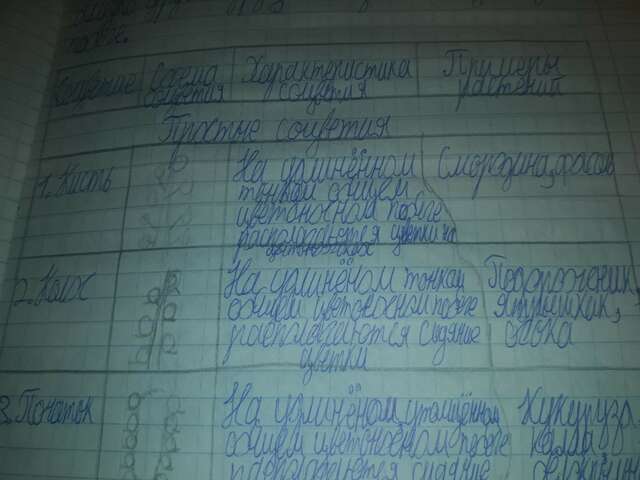 такое.
Соцветие Схема соцветия Характеристика соцветия Примеры растений
Простые соцветия
1. Кисть
На удлинённом
тонком общем
цветоносном побеге
располагаются цветки на
Смородина,
2. Колос
На удлинёном тонком
общем цветоносном побеге
располагаются сидячие
цветки
Подорожник,
ятрышник,
осока
3. Початок
На удлинёном утолщённом
общем цветоносном побеге
располагаются сидячие
Кукуруза
калла